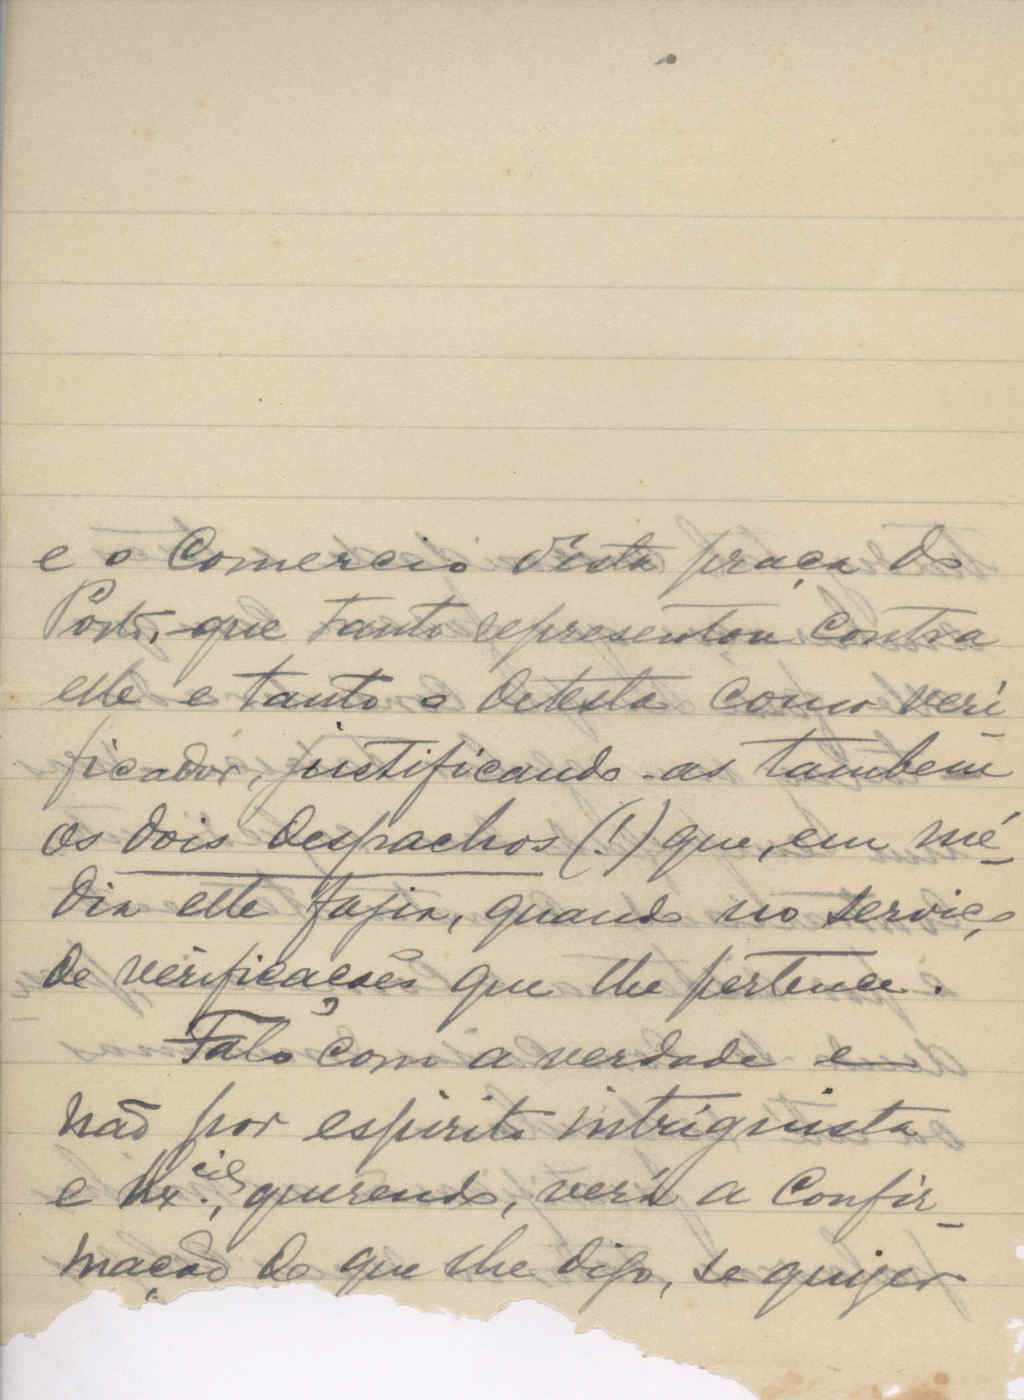 e o Comercio desta praça do
Porto, que tanto representou contra
elle e tanto o detesta como veri-
ficador, justificando-as tambem
os dois despachos (!) que, em mé-
dia elle fazia, quando no serviço
de verificações que lhe pertence.
Falo com a verdade e
não por espirito intriguista
e V. Ex.cia, querendo, verá a confir-
mação do que lhe digo, se quizer